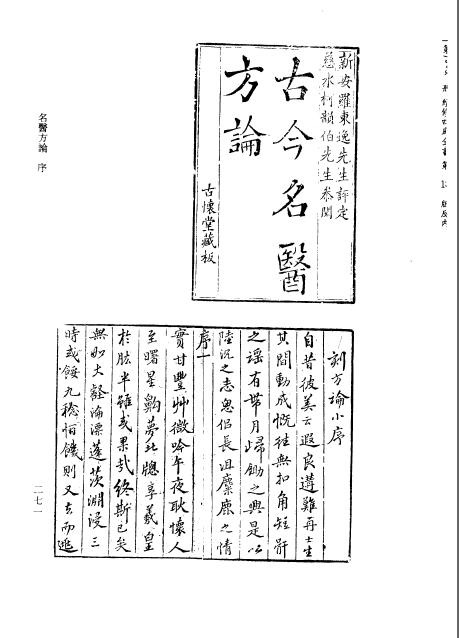 新安羅東逸先生評定
慈水柯韻伯先生參閱
古今名醫
方論
古懷堂藏板
名醫方論 序
刻方論小序
自昔彼美云遐良遘難再士生
其間動成慨往無扣角短
之謠有帶月歸鋤之興是以
陸沉之志鬼侶長沮麋鹿之情
序一
實甘豐艸微吟午夜耿懷人
至曙星夢北牕享羲皇
於肱半雖或果哉終斯已矣
無如大淪漂蓬茨淵浸三
時或餒九稔怕饑則又去而逃
二七一